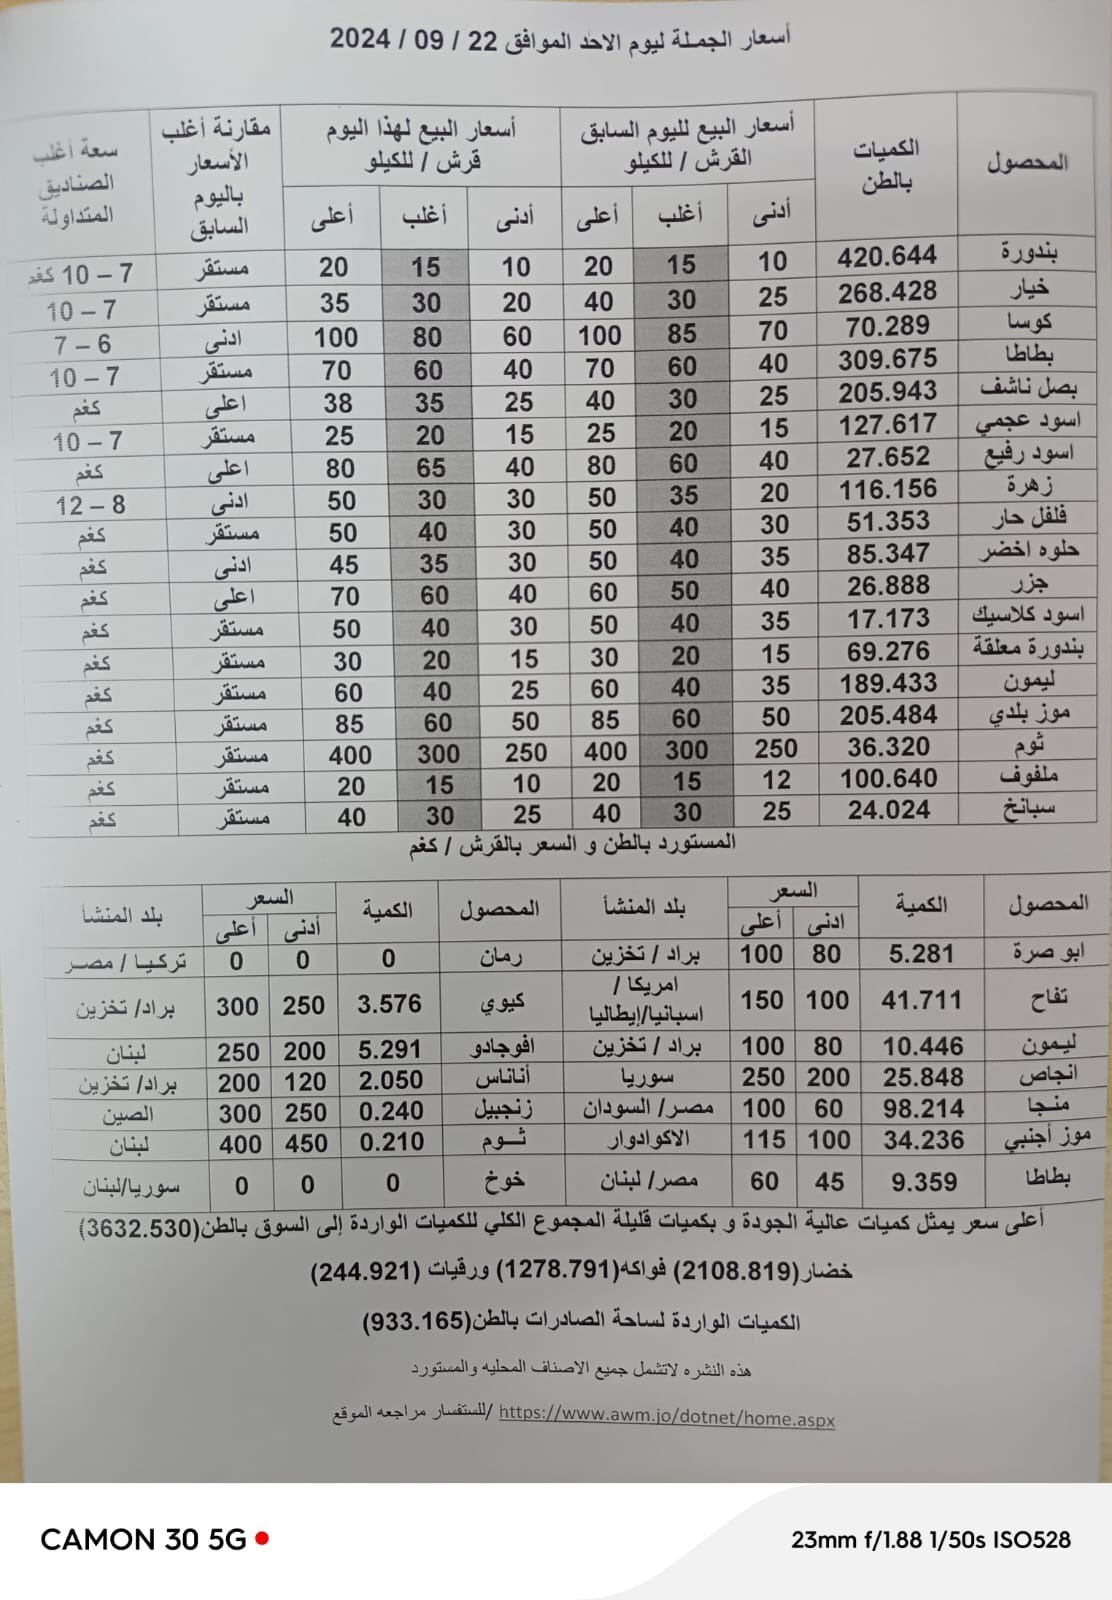 أسعار الجملة ليوم الاحد الموافق 22 / 09 / 2024
المحصول الكميات بالطن أسعار البيع لليوم السابق القرش / للكيلو أسعار البيع لهذا اليوم قرش / للكيلو مقارنة أغلب الأسعار باليوم السابق سعة أغلب الصناديق المتداولة
أدنى أغلب أعلى أدنى أغلب أعلى
بندورة 420.644 10 15 20 10 15 20 مستقر 7 – 10 كغم
خيار 268.428 25 30 40 20 30 35 مستقر 7 – 10
كوسا 70.289 70 85 100 60 80 100 ادنى 6 – 7
بطاطا 309.675 40 60 70 40 60 70 مستقر 7 – 10
بصل ناشف 205.943 25 30 40 25 35 38 اعلى كغم
اسود عجمي 127.617 15 20 25 15 20 25 مستقر 7 – 10
اسود رفيع 27.652 40 60 80 40 65 80 اعلى كغم
زهرة 116.156 20 35 50 30 30 50 ادنى 8 – 12
فلفل حار 51.353 30 40 50 30 40 50 مستقر كغم
حلوه اخضر 85.347 35 40 50 30 35 45 ادنى كغم
جزر 26.888 40 50 60 40 60 70 اعلى كغم
اسود كلاسيك 17.173 35 40 50 30 40 50 مستقر كغم
بندورة معلقة 69.276 15 20 30 15 20 30 مستقر كغم
ليمون 189.433 35 40 60 25 40 60 مستقر كغم
موز بلدي 205.484 50 60 85 50 60 85 مستقر كغم
ثوم 36.320 250 300 400 250 300 400 مستقر كغم
ملفوف 100.640 12 15 20 10 15 20 مستقر كغم
سبانخ 24.024 25 30 40 25 30 40 مستقر كغم
المستورد بالطن و السعر بالقرش / كغم
المحصول الكمية السعر بلد المنشأ المحصول الكمية السعر بلد المنشأ
ادنى أعلى أدنى أعلى
ابو صرة 5.281 80 100 براد / تخزين رمان 0 0 0 تركيا / مصر
تفاح 41.711 100 150 امريكا / اسبانيا/إيطاليا كيوي 3.576 250 300 براد/ تخزين
ليمون 10.446 80 100 براد / تخزين افوجادو 5.291 200 250 لبنان
انجاص 25.848 200 250 سوريا أناناس 2.050 120 200 براد/ تخزين
منجا 98.214 60 100 مصر/ السودان زنجبيل 0.240 250 300 الصين
موز أجنبي 34.236 100 115 الاكوادوار ثوم 0.210 450 400 لبنان
بطاطا 9.359 45 60 مصر/ لبنان خوخ 0 0 0 سوريا/لبنان
أعلى سعر يمثل كميات عالية الجودة و بكميات قليلة المجموع الكلي للكميات الواردة إلى السوق بالطن(3632.530)
خضار(2108.819) فواكه(1278.791) ورقيات (244.921)
الكميات الواردة لساحة الصادرات بالطن(933.165)
هذه النشره لاتشمل جميع الاصناف المحليه والمستورد
https://www.awm.jo/dotnet/home.aspx /للستفسار مراجعه الموقع
CAMON 30 5G
23mm f/1.88 1/50s ISO528